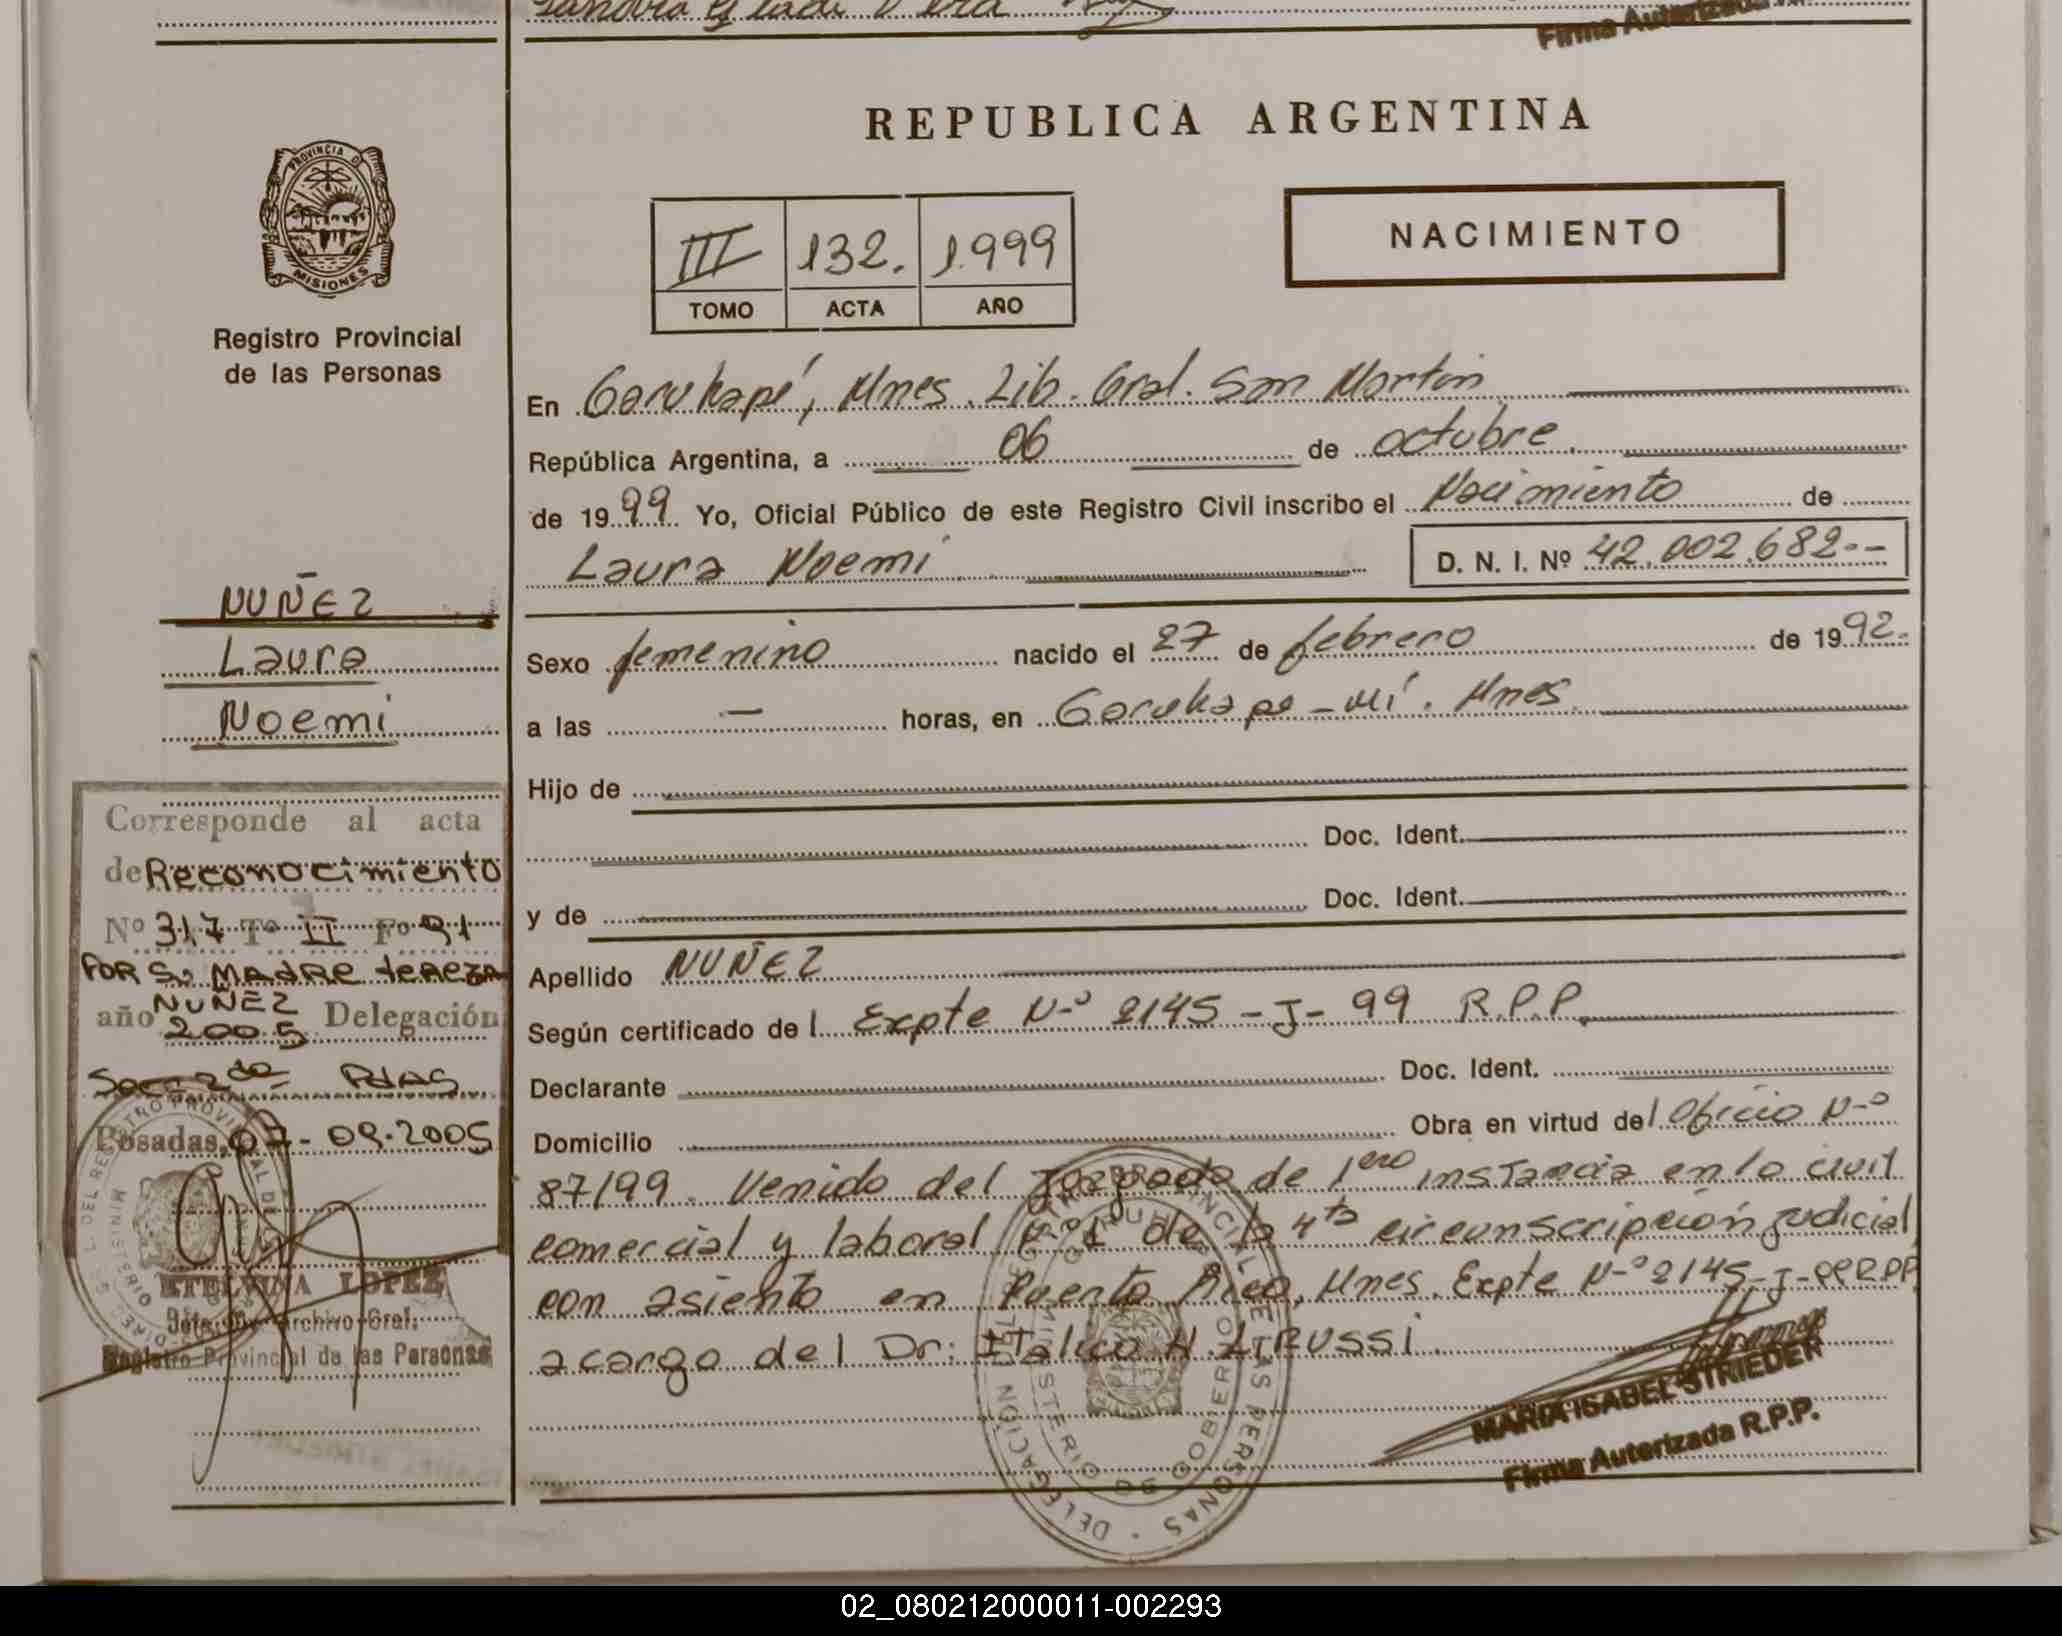 Firma Autorizada
REPUBLICA ARGENTINA
PROVINCIA D
MISIONES
Registro Provincial
de las Personas
NACIMIENTO
III 132. 1.999
TOMO ACTA AÑO
En Garuhapé, Mnes. Lib. Gral. San Martin
República Argentina, a 06 de octubre.
de 1999 Yo, Oficial Público de este Registro Civil inscribo el Nacimiento de
Laura Noemi D. N. I. Nº 42.002.682.--
NUÑEZ
Laura
Noemi
Sexo femenino nacido el 27 de febrero de 1992.
a las - horas, en Garuhape-Mí. Mnes.
Hijo de
Doc. Ident.
y de Doc. Ident.
Apellido NUÑEZ
Según certificado del Expte N-º 2145-J-99 R.P.P.
Declarante Doc. Ident.
Domicilio Obra en virtud del Oficio N-º
87/99. Venido del Juzgado de 1ero instancia en lo civil
comercial y laboral N-º1 de la 4ta circunscripción judicial
con asiento en Puerto Rico, Mnes. Expte N-º 2145-J-
a cargo del Dr: Italico N. LIRUSSI.
MARIA ISABEL STRIEDER
Firma Autorizada R.P.P.
Corresponde al acta
de Reconocimiento
Nº 317 Tº II Fº 91
POR S. MADRE tereza
NUÑEZ
año 2005 Delegación
Secc 2da Pdas
Posadas, 07-09-2005
ETELVINA LOPEZ
Archivo Gral.
Registro Provincial de las Personas
02_080212000011-002293